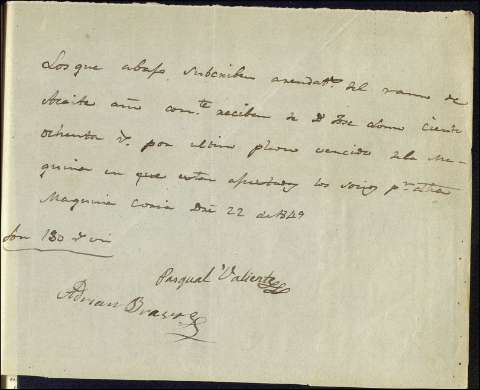 Los que abajo subcriben arendat.s del ramo de
Aceite año corr.te reciben de D.n Jose Lomo ciento
ochenta r.s por ultimo plazo vencido de la Ma-
quina en que estan ajustados los socios p.r
Maquina Coria Dre 22 de 1849
Son 180 r.s vn
Pasqual Valiente
Adrian Bravo